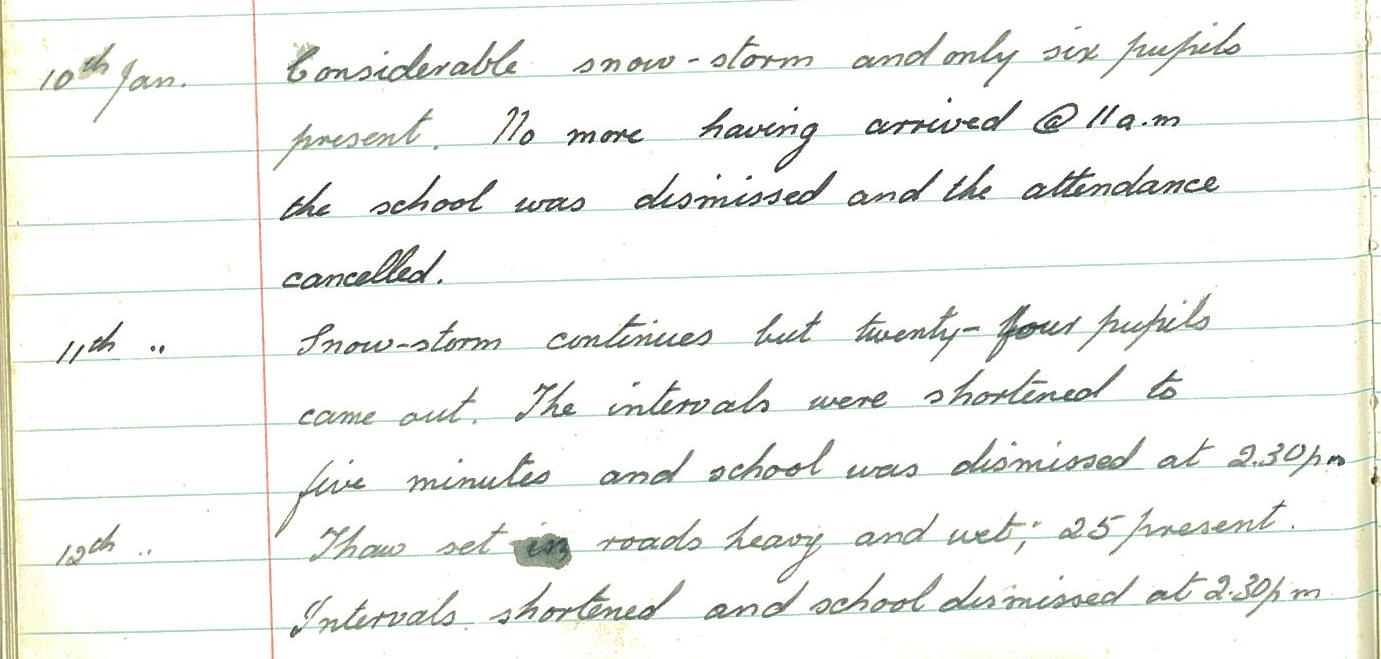 10th Jan. Considerable snow-storm and only six pupils
present. No more having arrived @ 11a.m
the school was dismissed and the attendance
cancelled.
11th " Snow-storm continues but twenty-four pupils
came out. The intervals were shortened to
five minutes and school was dismissed at 2.30pm
12th " Thaw set in roads heavy and wet; 25 present.
Intervals shortened and school dismissed at 2.30pm